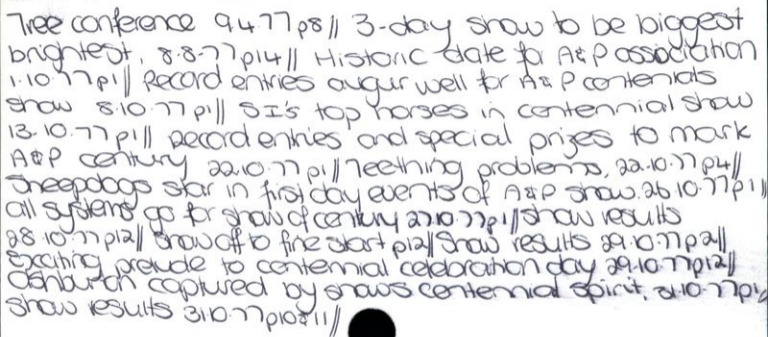 Tree conference 9.4.77 p8// 3-day show to be biggest
brightest. 8.8.77 p14// Historic date for A&P association
1.10.77 p1// Record entries augur well for A&P contenials
show 8.10.77 p1// S.I's top horses in centennial show
13.10.77 p1// Record entries and special prizes to mark
A&P century 22.10.77 p1// Teething problems, 22.10.77 p4//
Sheepdogs star in first day events of A&P show. 26.10.77 p1//
all systems go for show of century 27.10.77 p1// show results
28.10.77 p12// show off to fine start p12// Show results 29.10.77 p2//
Exciting prelude to centennial celebration day 29.10.77 p12//
Ashburton captured by shows centennial spirit, 31.10.77 p1//
show results 31.10.77 p10&11//